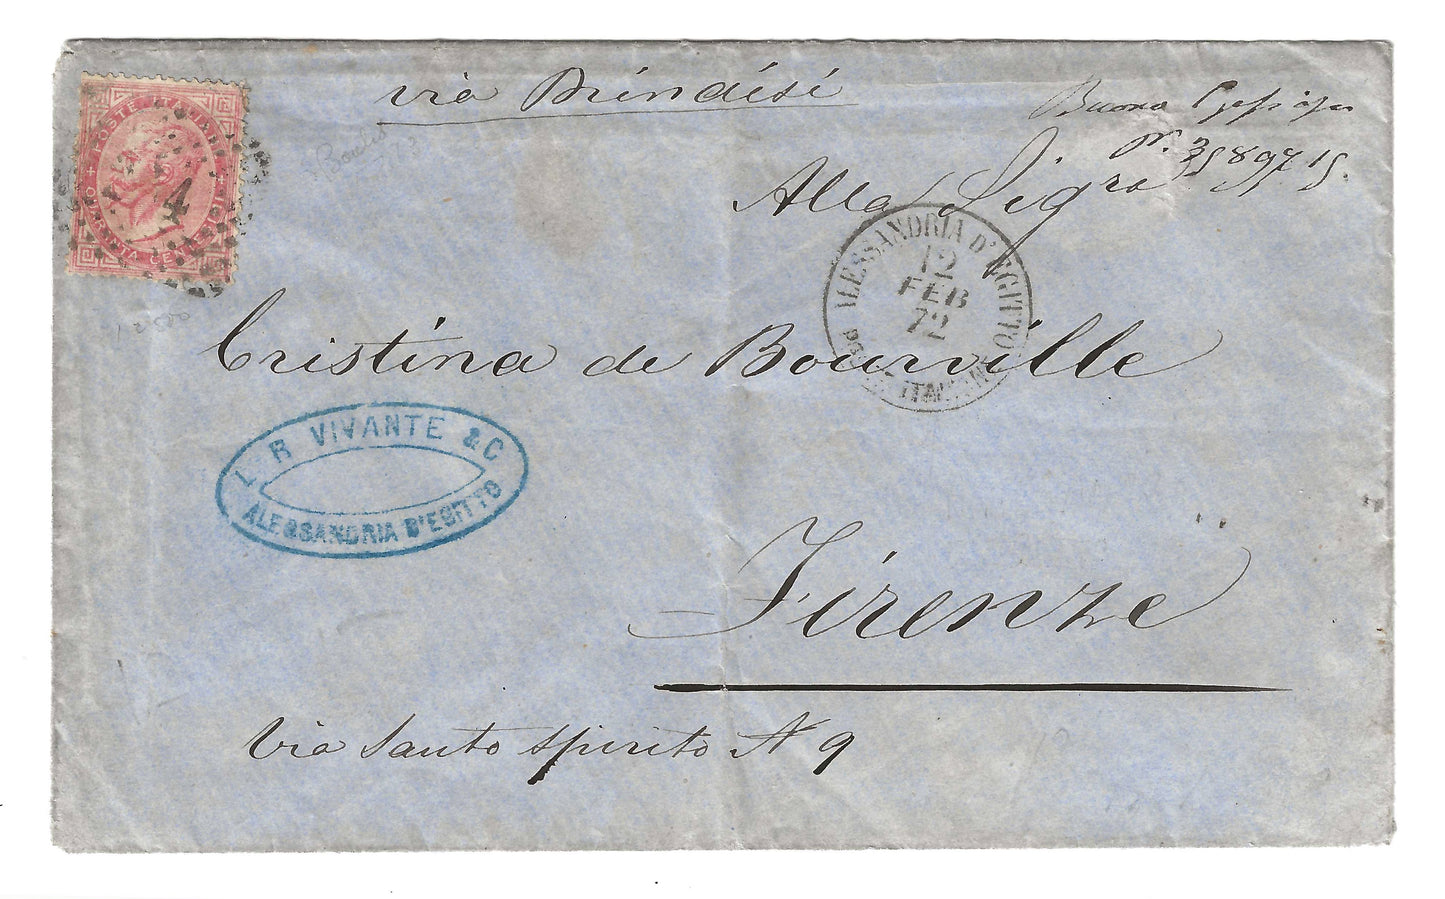 via Brindisi
Buono
N.
Alla Sigra
POSTE ITALIANE
4
ALESSANDRIA D'EGITTO
12
FEB
72
POSTE ITALIANE
Cristina de Bourville
L. R VIVANTE & C
ALESSANDRIA D'EGITTO
Firenze
Via Santo Spirito N 9